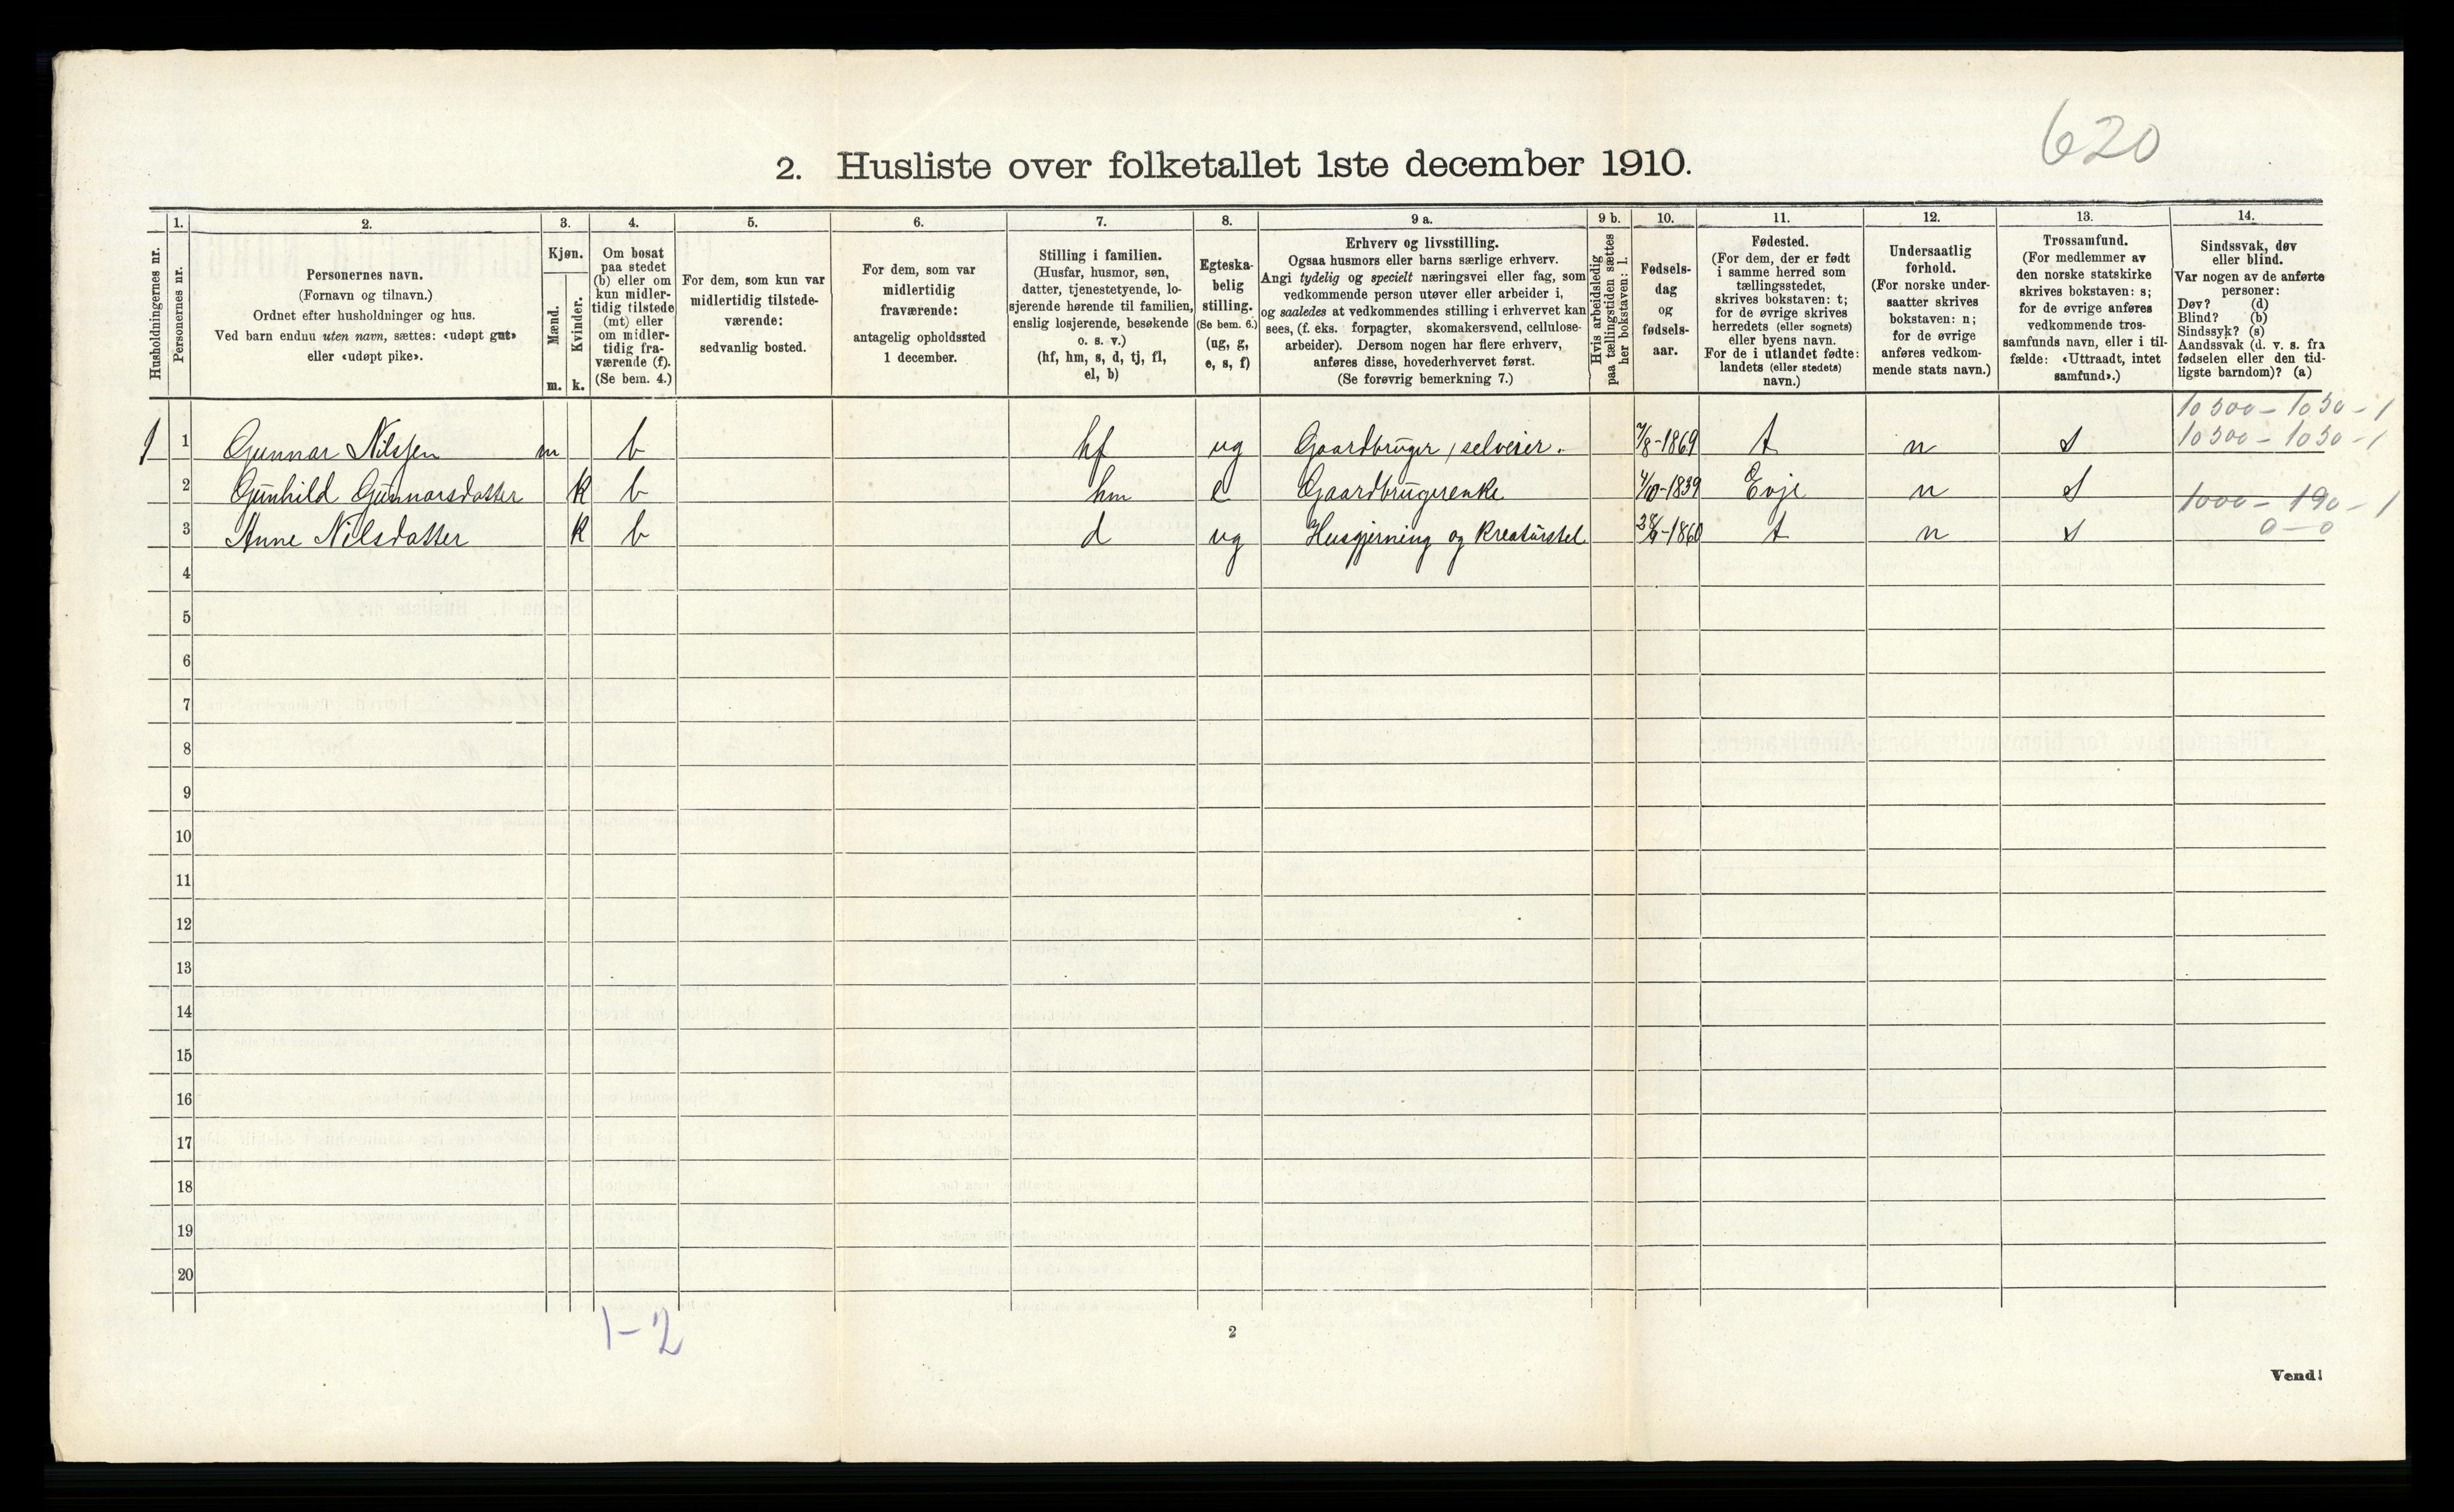 620
2. Husliste over folketallet 1ste december 1910.
Husholdningernes nr.
1. Personernes nr.
2. Personernes navn.
(Fornavn og tilnavn.)
Ordnet efter husholdninger og hus.
Ved barn endnu uten navn, sættes: «udøpt gut»
eller «udøpt pike».
3. Kjøn.
Mænd. m.
Kvinder. k.
4. Om bosat
paa stedet
(b) eller om
kun midler-
tidig tilstede
(mt) eller
om midler-
tidig fra-
værende (f).
(Se bem. 4.)
5. For dem, som kun var
midlertidig tilstede-
værende:
sedvanlig bosted.
6. For dem, som var
midlertidig
fraværende:
antagelig opholdssted
1 december.
7. Stilling i familien.
(Husfar, husmor, søn,
datter, tjenestetyende, lo-
sjerende hørende til familien,
enslig losjerende, besøkende
o. s. v.)
(hf, hm, s, d, tj, fl,
el, b)
8. Egteska-
belig
stilling.
(Se bem. 6.)
(ug, g,
e, s, f)
9 a. Erhverv og livsstilling.
Ogsaa husmors eller barns særlige erhverv.
Angi tydelig og specielt næringsvei eller fag, som
vedkommende person utøver eller arbeider i,
og saaledes at vedkommendes stilling i erhvervet kan
sees, (f. eks. forpagter, skomakersvend, cellulose-
arbeider). Dersom nogen har flere erhverv,
anføres disse, hovederhvervet først.
(Se forøvrig bemerkning 7.)
9 b. Hvis arbeidsledig
paa tællingstiden sættes
her bokstaven: l.
10. Fødsels-
dag
og
fødsels-
aar.
11. Fødested.
(For dem, der er født
i samme herred som
tællingsstedet,
skrives bokstaven: t;
for de øvrige skrives
herredets (eller sognets)
eller byens navn.
For de i utlandet fødte:
landets (eller stedets)
navn.)
12. Undersaatlig
forhold.
(For norske under-
saatter skrives
bokstaven: n;
for de øvrige
anføres vedkom-
mende stats navn.)
13. Trossamfund.
(For medlemmer av
den norske statskirke
skrives bokstaven: s;
for de øvrige anføres
vedkommende tros-
samfunds navn, eller i til-
fælde: «Uttraadt, intet
samfund».)
14. Sindssvak, døv
eller blind.
Var nogen av de anførte
personer:
Døv? (d)
Blind? (b)
Sindssyk? (s)
Aandssvak (d. v. s. fra
fødselen eller den tid-
ligste barndom)? (a)
10500 - 1050 - 1
1 1 Gunnar Nilssen m b hf ug Gaardbruger, selveier. 7/8-1869 t n s 10500 - 1050 - 1
2 Gunhild Gunnarsdatter k b hm e Gaardbrugerenke 4/10-1839 Evje n s
1000 - 190 - 1
3 Anne Nilsdatter k b d ug Husgjerning og kreaturstel -1860 t n s 0-0
4
5
6
7
8
9
10
11
12
13
14
15
16
17
18
19
20
1-2
2
Vend!